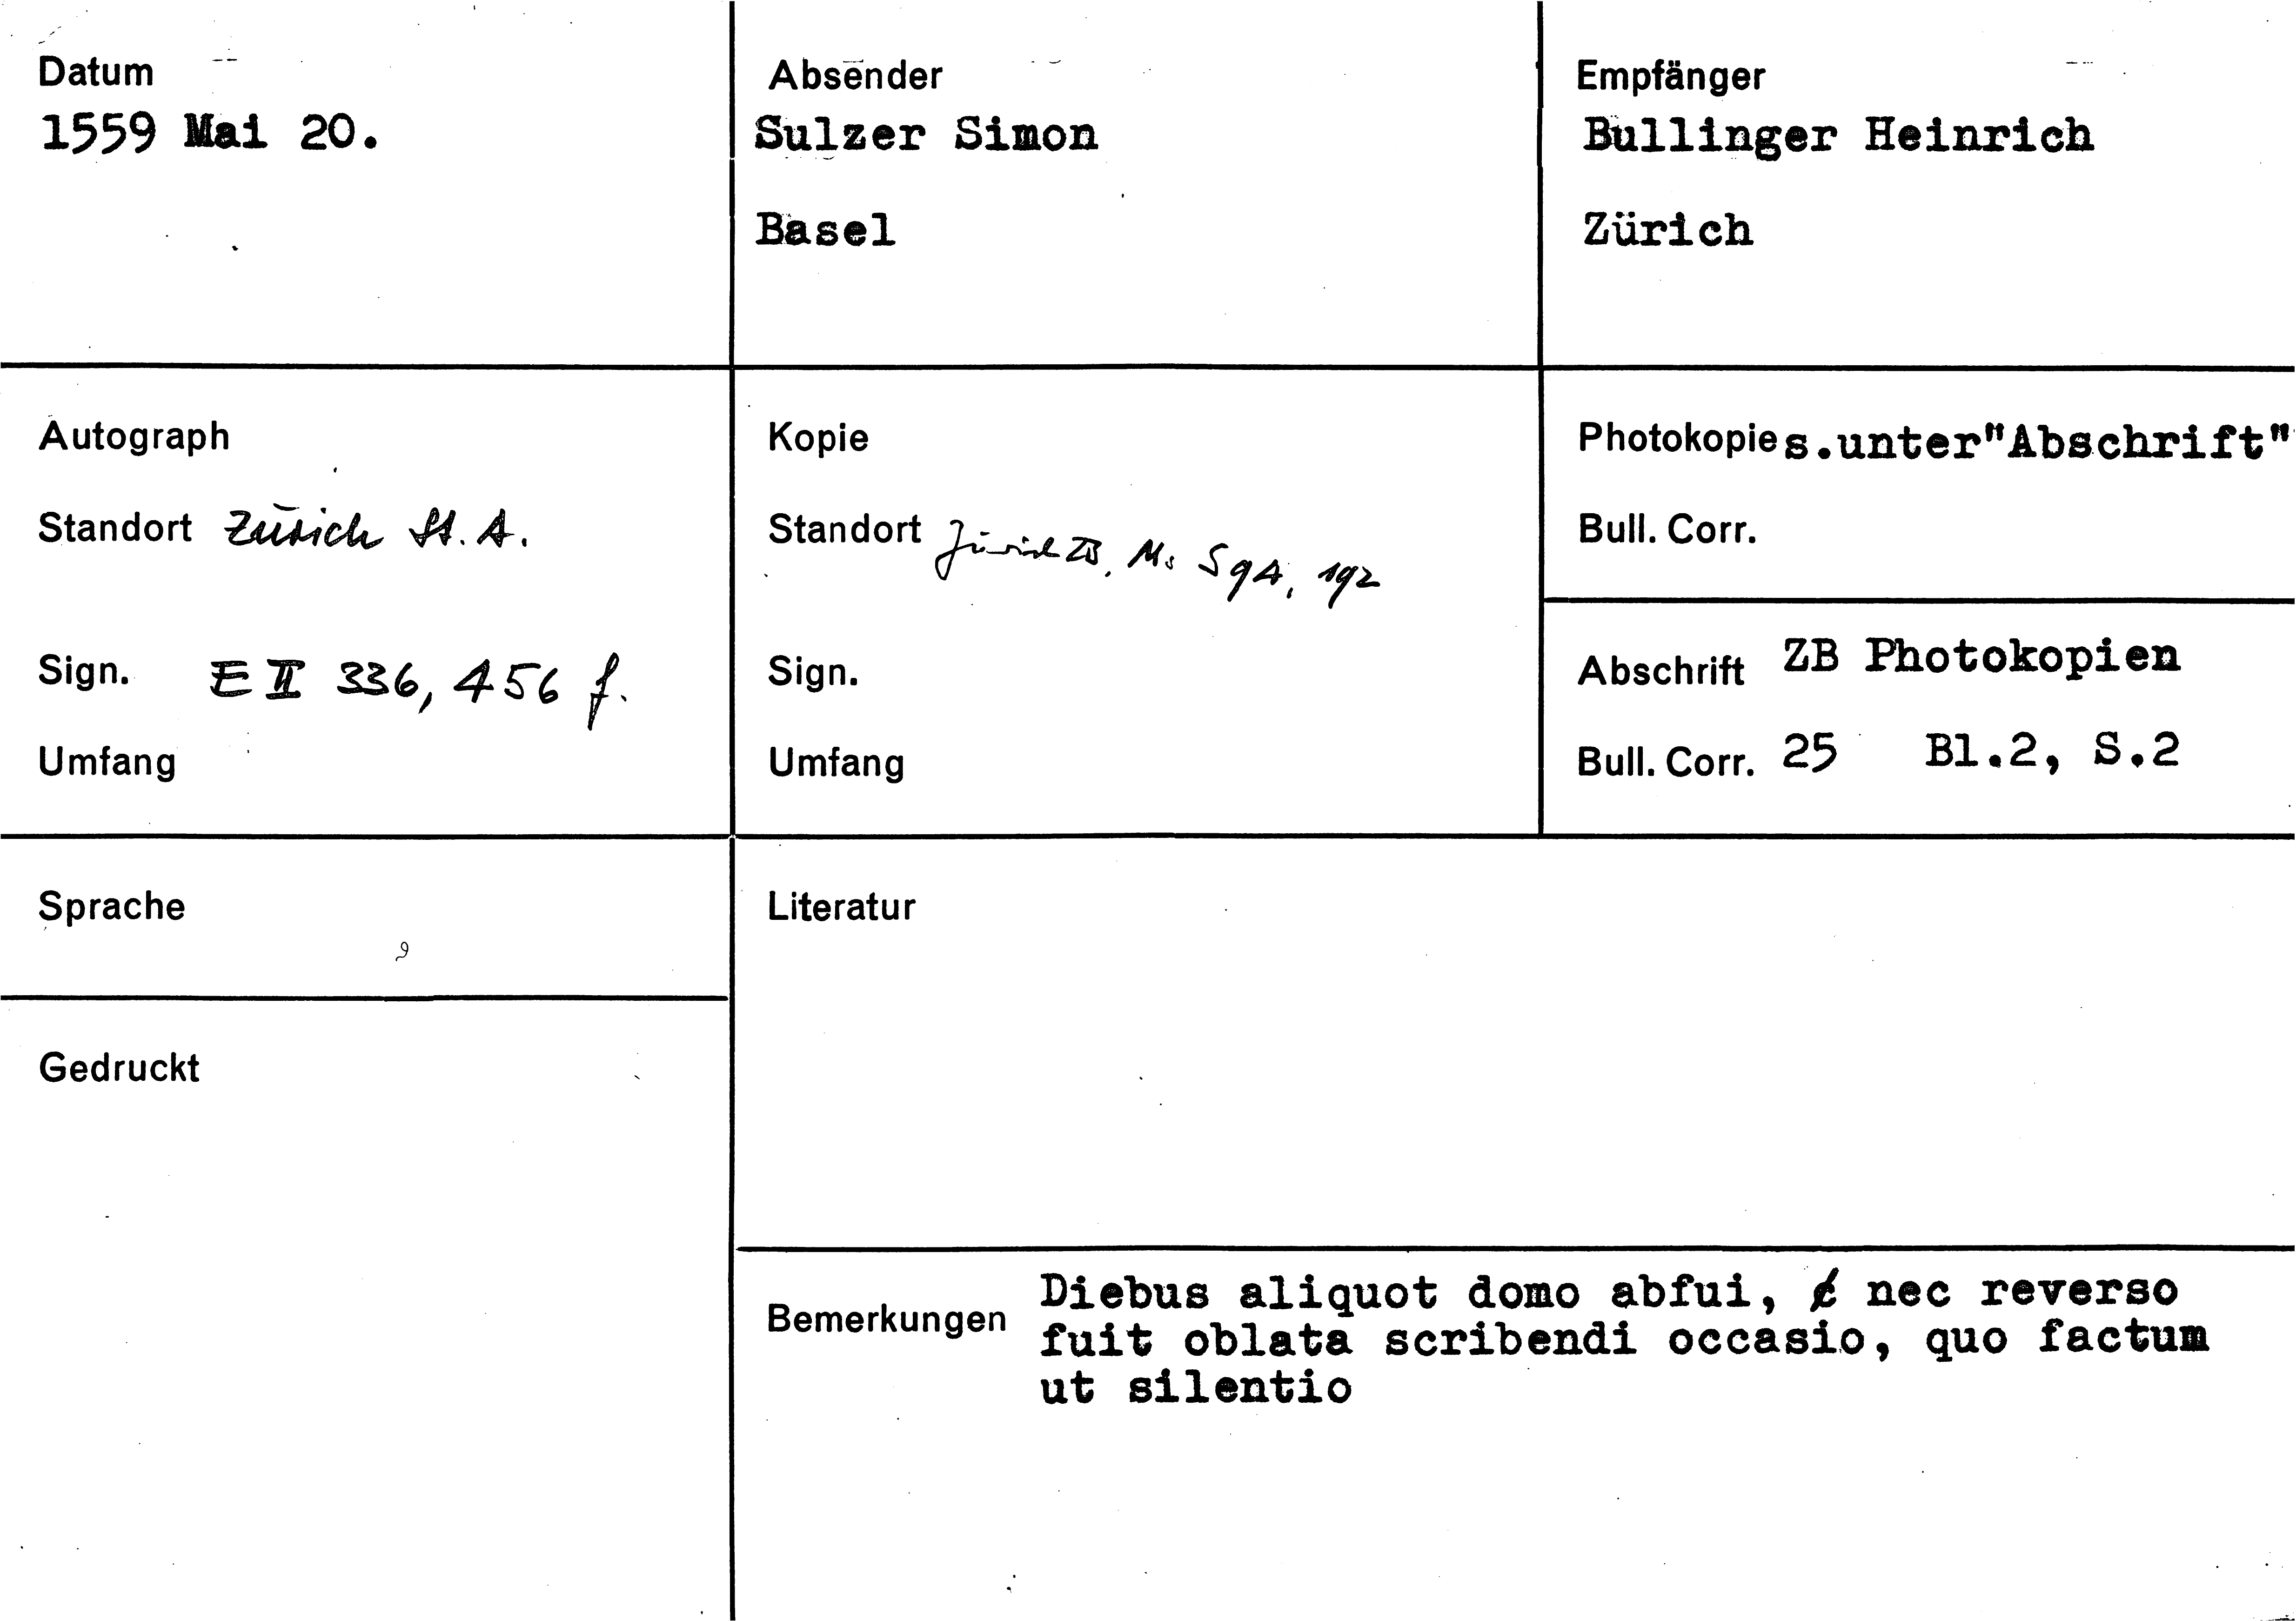 Datum
1559 Mai 20.
Absender
Sulzer Simon
Basel
Empfänger
Bullinger Heinrich
Zürich
Autograph
Standort Zürich St. A.
Sign. E II 336, 456 f.
Umfang
Kopie
Standort Zürich ZB, Ms S 94, 192
Sign.
Umfang
Photokopie s.unter"Abschrift"
Bull. Corr.
Abschrift ZB Photokopien
Bull. Corr. 25 Bl.2, S.2
Sprache
Gedruckt
Literatur
Bemerkungen Diebus aliquot domo abfui, nec reverso
fuit oblata scribendi occasio, quo factum
ut silentio